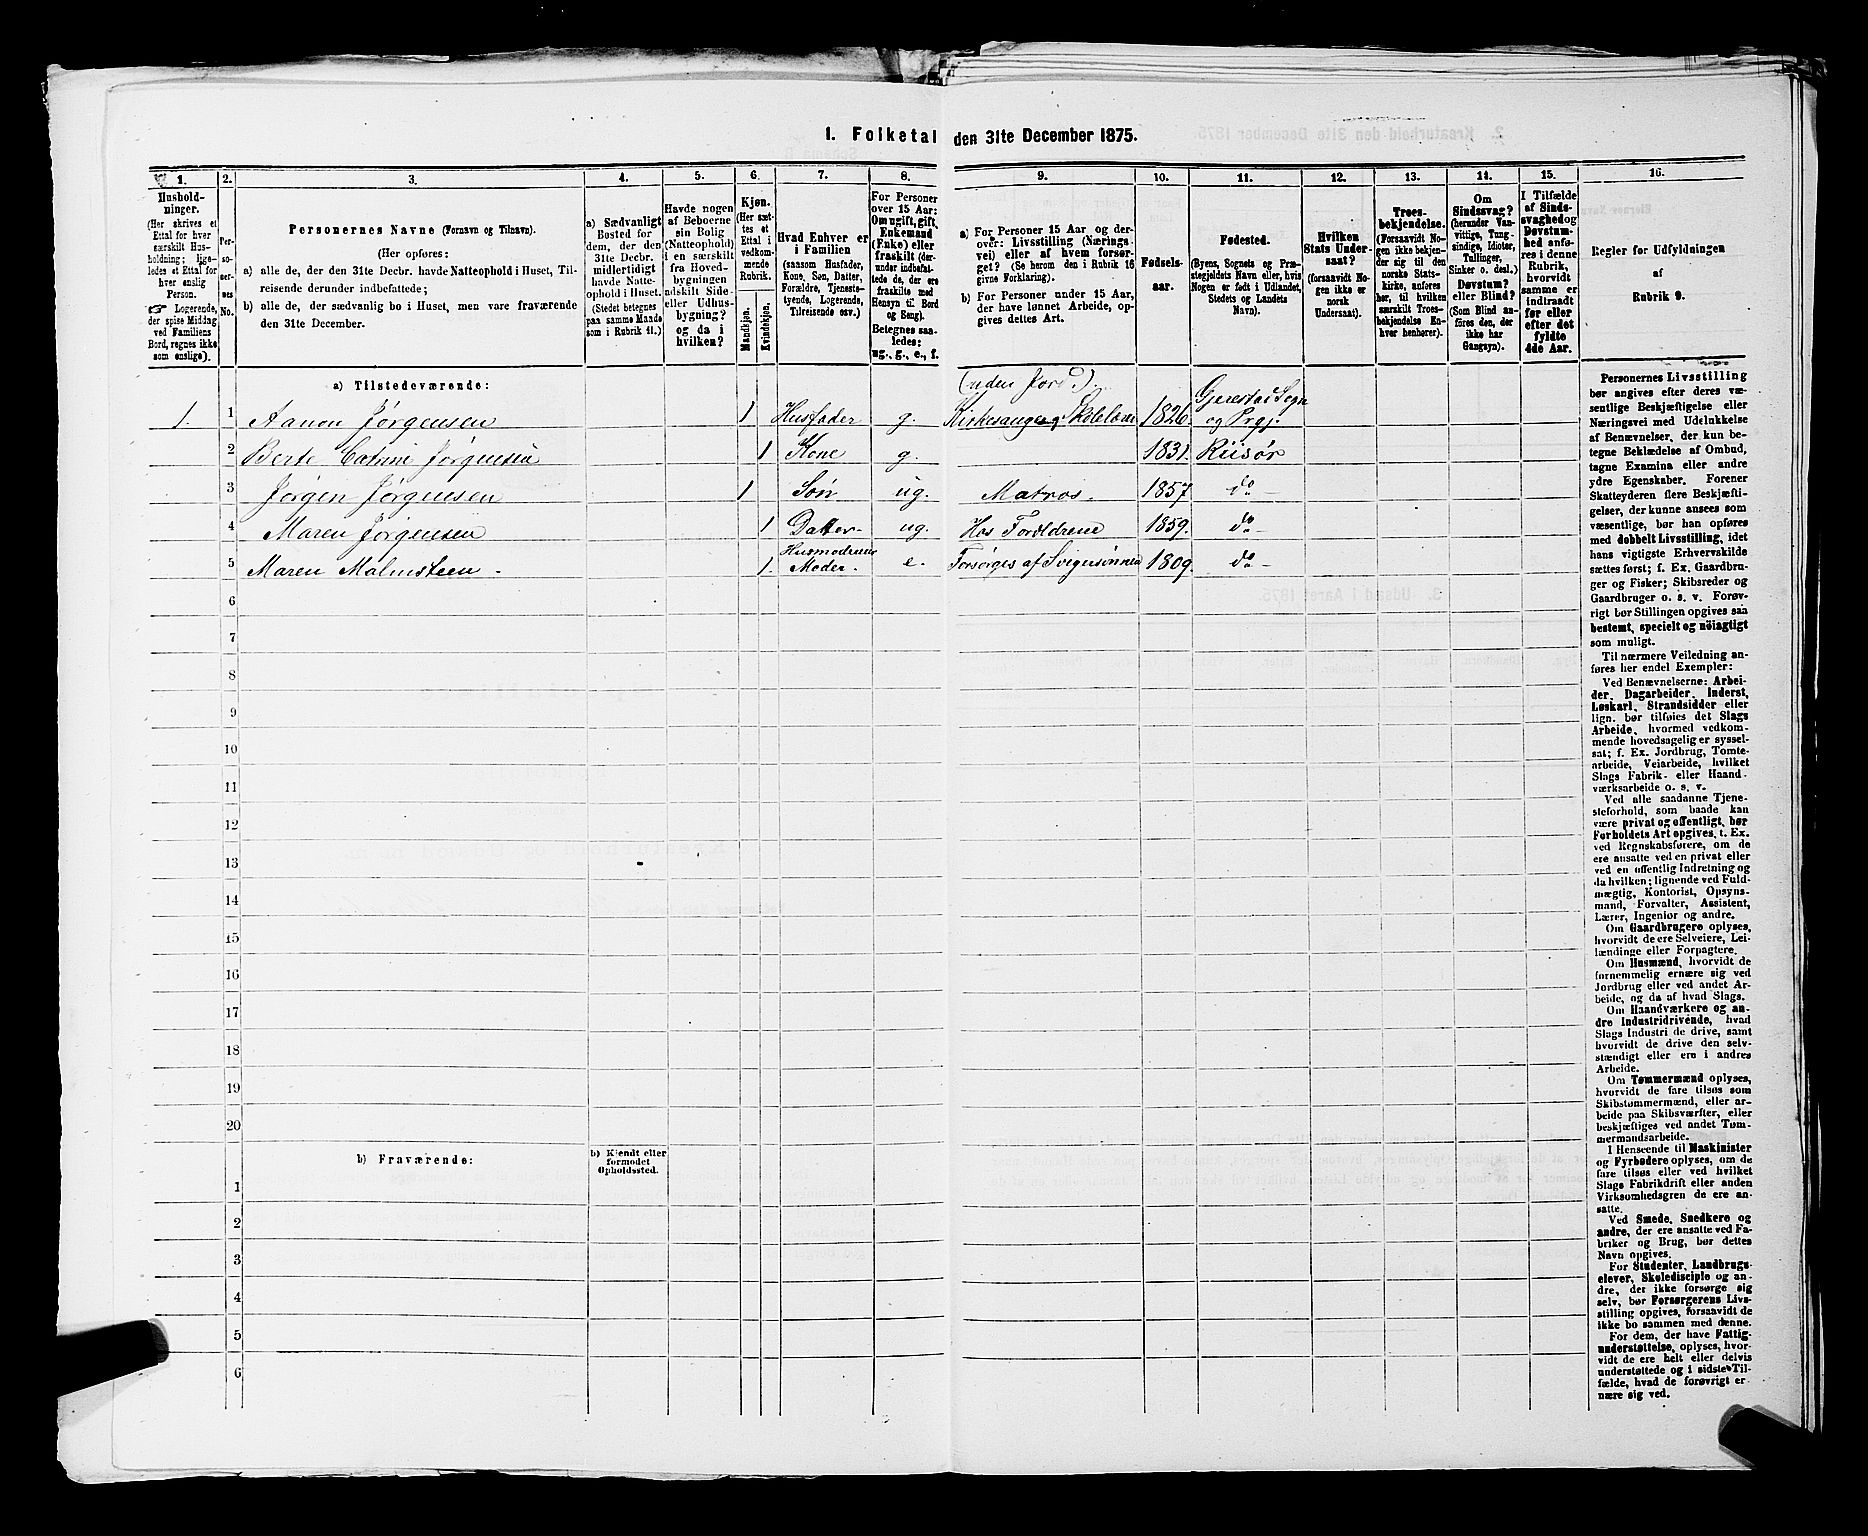 1. Folketal den 31te December 1875.
1. 2. 3. 4. 5. 6. 7. 8. 9. 10. 11. 12. 13. 14. 15. 16.
Hushold-
ninger.
(Her skrives et
Ettal for hver
særskilt Hus-
holdning; lige-
ledes et Ettal for
hver enslig
Person.
☞ Logerende,
der spise Middag
ved Familiens
Bord, regnes ikke
som enslige).
Per-
so-
ner-
nes
No.
Personernes Navne (Fornavn og Tilnavn).
(Her opføres:
a) alle de, der den 31te Decbr. havde Natteophold i Huset, Til-
reisende derunder indbefattede;
b) alle de, der sædvanlig bo i Huset, men vare fraværende
den 31te December.
a) Sædvanligt
Bosted for
dem, der den
31te Decbr.
midlertidigt
havde Natte-
ophold i Huset.
(Stedet betegnes
paa samme Maade
som i Rubrik 11.)
Havde nogen
af Beboerne
sin Bolig
(Natteophold)
i en særskilt
fra Hoved-
bygningen
adskilt Side-
eller Udhus-
bygning?
og da i
hvilken?
Kjøn.
(Her sæt-
tes et
Ettal i
vedkom-
mende
Rubrik.
Mandkjøn.
Kvindekjøn.
Hvad Enhver er
i Familien
(saasom Husfader,
Kone, Søn, Datter,
Forældre, Tjeneste-
tyende, Logerende,
Tilreisende osv.)
For Personer
over 15 Aar:
Om ugift, gift,
Enkemand
(Enke) eller
fraskilt (der-
under indbefat-
tede de, der ere
fraskilte med
Hensyn til Bord
og Seng).
Betegnes saa-
ledes:
ug., g., e., f.
a) For Personer 15 Aar og der-
over: Livsstilling (Nærings-
vei) eller af hvem forsør-
get? (Se herom den i Rubrik 16
givne Forklaring).
b) For Personer under 15 Aar,
der have lønnet Arbeide, op-
gives dettes Art.
Fødsels-
aar.
Fødested.
(Byens, Sognets og Præ-
stegjeldets Navn eller, hvis
Nogen er født i Udlandet,
Stedets og Landets
Navn).
Hvilken
Stats Under-
saat?
(forsaavidt No-
gen ikke er
norsk
Undersaat).
Troes-
bekjendelse.
(Forsaavidt No-
gen ikke bekjen-
der sig til den
norske Stats-
kirke, anføres
her, til hvilken
særskilt Troes-
bekjendelse En-
hver henhører).
Om
Sindssvag?
(herunder Van-
vittige, Tung-
sindige, Idioter,
Tullinger,
Sinker o. desl.)
Døvstum?
eller Blind?
(Som Blind an-
føres den, der
ikke har
Gangsyn).
I Tilfælde
af Sinds-
svaghed og
Døvstum-
hed anfø-
res i denne
Rubrik,
hvorvidt
samme er
indtraadt
før eller
efter det
fyldte
4de Aar.
Regler for Udfyldningen
af
Rubrik 9.
a) Tilstedeværende:
(uden Jord.).
1. 1 Aanon Jørgensen 1 Husfader g. Kirkesanger og Skolelærer 1826. Gjerestad Sogn
og Prgj.
2 Berte Catrine Jørgensen 1 Kone g. 1831. Riisør
3 Jørgen Jørgensen 1 Søn ug. Matros. 1857 do
4 Maren Jørgensen 1 Datter ug. Hos Forældrene 1859. do
5 Maren Malmsteen 1. Husmoderens
Moder e. Forsørges af Svigersønnen 1809. do
6
7
8
9
10
11
12
13
14
15
16
17
18
19
20
b) Fraværende:
b) Kjendt eller
formodet
Opholdssted.
1
2
3
4
5
6
Personernes Livsstilling
bør angives efter deres væ-
sentlige Beskjæftigelse eller
Næringsvei med Udelukkelse
af Benævnelser, der kun be-
tegne Beklædelse af Ombud,
tagne Examina eller andre
ydre Egenskaber. Forener
Skatteyderen flere Beskjæfti-
gelser, der kunne ansees som
væsentlige, bør han opføres
med dobbelt Livsstilling, idet
hans vigtigste Erhvervskilde
sættes først; f. Ex. Gaardbru-
ger og Fisker; Skibsreder og
Gaardbruger o. s. v. Forøv-
rigt bør Stillingen opgives saa
bestemt, specielt og nøiagtigt
som muligt.
Til nærmere Veiledning an-
føres her endel Exempler:
Ved Benævnelserne: Arbei-
der, Dagarbeider, Inderst,
Løskarl, Strandsidder eller
lign. bør tilføies det Slags
Arbeide, hvormed vedkom-
mende hovedsagelig er syssel-
sat; f. Ex. Jordbrug, Tomte-
arbeide, Veiarbeide, hvilket
Slags Fabrik- eller Haand-
værksarbeide o. s. v.
Ved alle saadanne Tjene-
steforhold, som baade kan
være privat og offentligt, bør
Forholdets Art opgives, t. Ex.
ved Regnskabsførere, om de
ere ansatte ved en privat eller
ved en offentlig Indretning og
da hvilken; lignende ved Fuld-
mægtig, Kontorist, Opsyns-
mand, Forvalter, Assistent,
Lærer, Ingeniør og andre.
Om Gaardbrugere oplyses,
hvorvidt de ere Selveiere, Lei-
lændinge eller Forpagtere.
Om Husmænd, hvorvidt de
fornemmelig ernære sig ved
Jordbrug eller ved andet Ar-
beide, og da af hvad Slags.
Om Haandværkere og an-
dre Industridrivende, hvad
Slags Industri de drive, samt
hvorvidt de drive den selv-
stændigt eller ere i andres
Arbeide.
Om Tømmermænd oplyses,
hvorvidt de fare tilsøs som
Skibstømmermænd, eller ar-
beide paa Skibsværfter, eller
beskjæftiges ved andet Tøm-
mermandsarbeide.
I Henseende til Maskinister
og Fyrbødere oplyses, om de
fare tilsøs eller ved hvilket
Slags Fabrikdrift eller anden
Virksomhedsgren de ere an-
satte.
Ved Smede, Snedkere og
andre, der ere ansatte ved Fa-
briker og Brug, bør dettes
Navn opgives.
For Studenter, Landbrugs-
elever, Skoledisciple og an-
dre, der ikke forsørge sig
selv, bør Forsørgerens Livs-
stilling opgives, forsaavidt de
ikke bo sammen med denne.
For dem, der have Fattig-
understøttelse, oplyses, hvor-
vidt de ere helt eller delvis
understøttede og i sidste Til-
fælde, hvad de forøvrigt er-
nære sig ved.